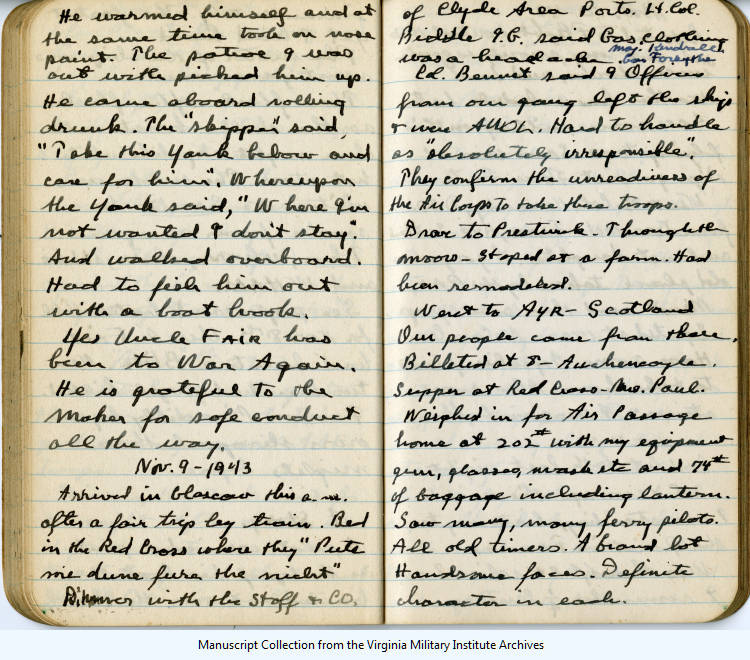 He warmed himself and at
the same time took on nose
paint. The patrol I was
out with picked him up.
He came aboard rolling
drunk. The "skipper" said,
"Take this Yank below and
care for him". Whereupon
the Yank said, "Where I'm
not wanted I don't stay".
And walked overboard.
Had to fish him out
with a boat hook.
Yes Uncle FAIR has
been to War Again.
He is grateful to the
Maker for safe conduct
all the way.
Nov. 9-1943
Arrived in Glascow this a.m.
after a fair trip by train. Bed
in the Red Cross where they "Puts
me dune fure the nicht"
Dinner with the Staff & CO.
of Clyde Area Ports. Lt. Col.
Biddle I.G. said Gas clothing
was a headache. Maj. Kendrall,
Forsythe
Col. Bennet said 9 Officers
from our gang left the ships
& were AWOL. Hard to handle
as "absolutely irresponsible".
They confirm the unreadiness of
the Air Corps to take these troops.
Drove to Prestwick. Through the
moors - stoped at a farm. Had
been remodeled.
Went to AYR - Scotland
Our people came from there.
Billeted at 8 - Auchencoyle.
Supper at Red Cross - Mrs. Paul.
Weighed in for Air Passage
home at 202# with my equipment
gun, glasses, mask etc and 74#
of baggage including lantern.
Saw many, many ferry pilots.
All old timers. A brand lot
Handsome faces. Definite
character in each.
Manuscript Collection from the Virginia Military Institute Archives